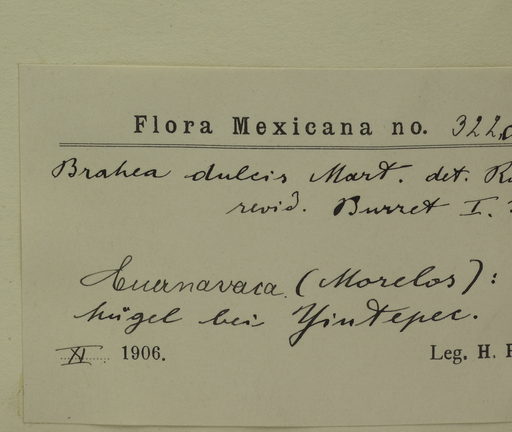 Flora Mexicana no. 322
Brahea dulcis Mart. det.
revid. Burret I.
Cuernavaca (Morelos):
hügel bei Yiutepec.
XI 1906. Leg. H.